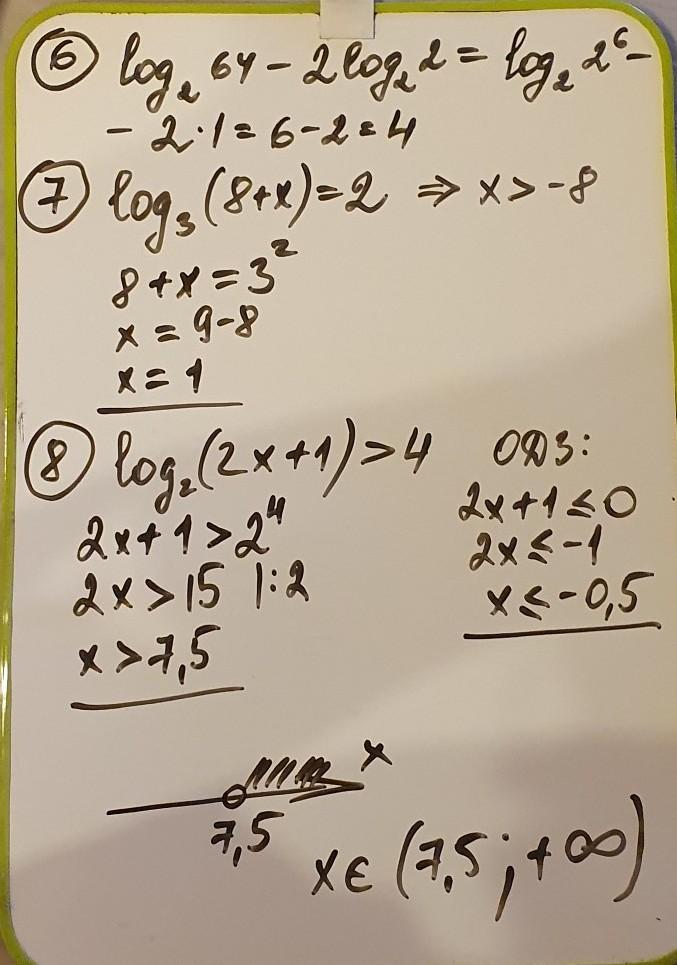 6 log₂ 64 - 2log₂ 2 = log₂ 2⁶ -
- 2·1 = 6 - 2 = 4
7 log₃ (8+x) = 2 ⇒ x > -8
8 + x = 3²
x = 9 - 8
x = 1
8 log₂ (2x+1) > 4
2x + 1 > 2⁴
2x > 15 |:2
x > 7,5
ОДЗ:
2x + 1 ≤ 0
2x ≤ -1
x ≤ -0,5
x
7,5
x ∈ (7,5 ; +∞)